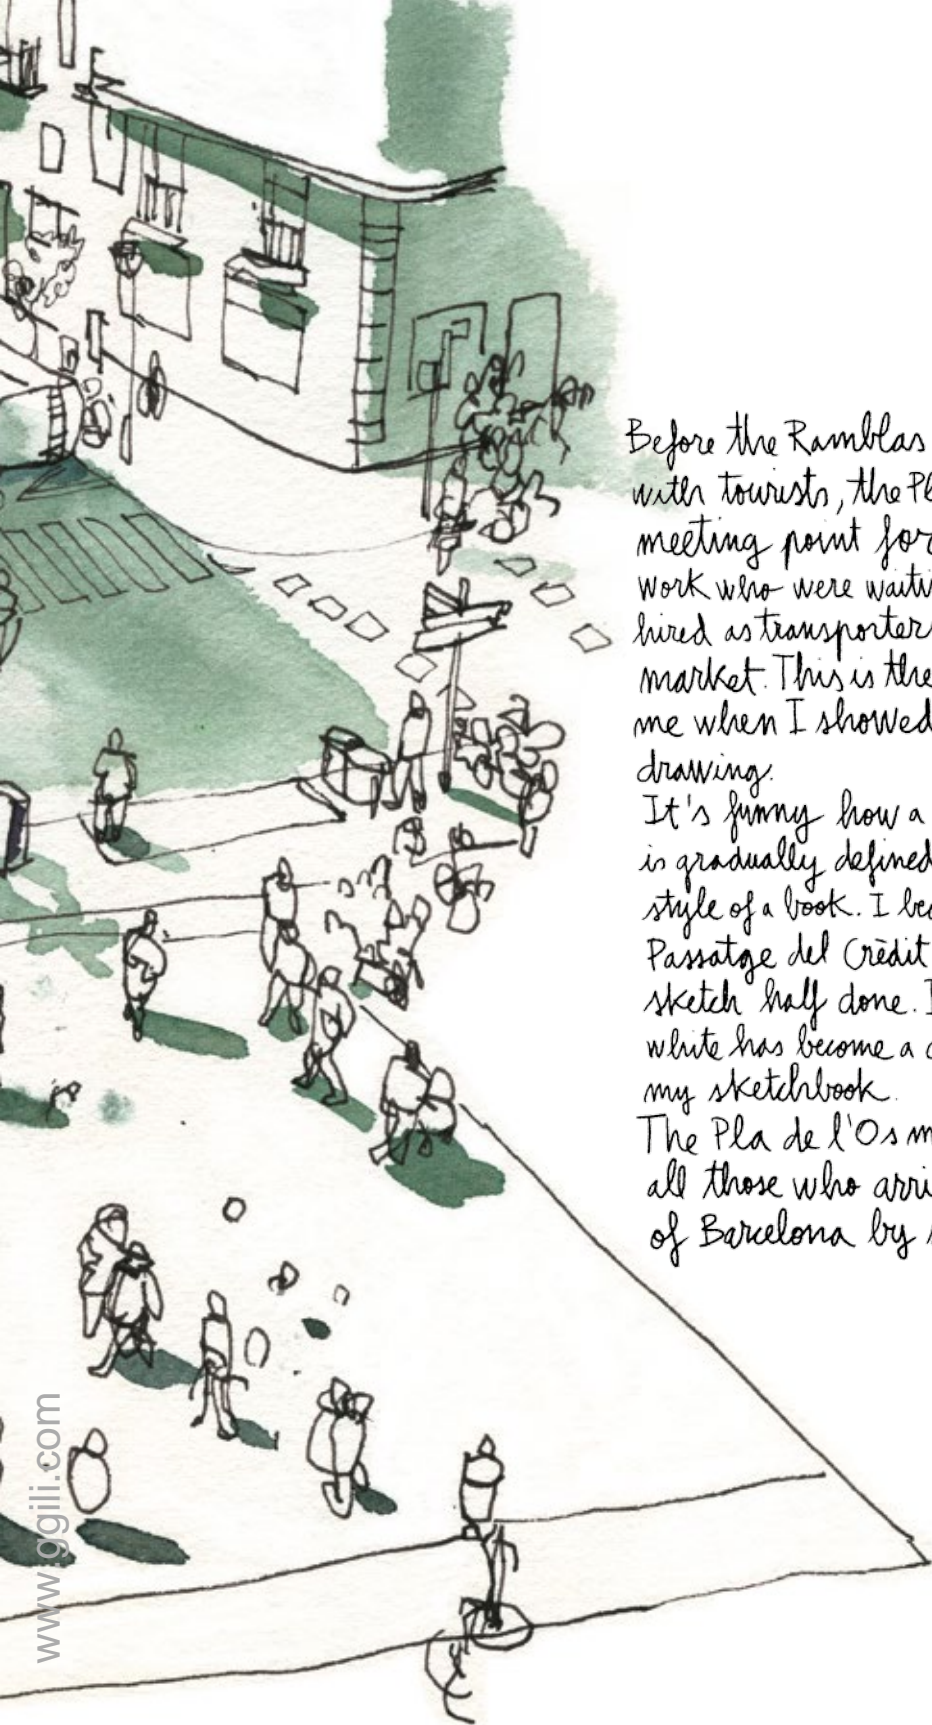 Before the Ramblas
with tourists, the Pl
meeting point for
work who were waiti
hired as transporter
market. This is the
me when I showed
drawing.
It's funny how a
is gradually defined
style of a book. I bec
Passatge del Crèdit
sketch half done. I
white has become a c
my sketchbook.
The Pla de l'Os m
all those who arri
of Barcelona by
www.ggili.com